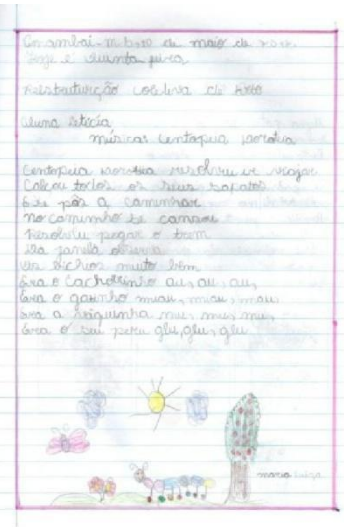 de maio de
Hoje é feira
Reestruturção coletiva de texto
Aluna
músicas centopeia
Centopeia resolveu ir viajar
Calçou todos os seus sapatos
E se pôs a caminhar
no caminho se cansou
Resolveu pegar o trem
Da janela observa
Os bichios muito bem
Era o cachorrinho au, au, au,
Era o gatinho miau, miau, miau
Era a muu, muu, muu,
Era o seu peru glu, glu, glu
maria Luiza